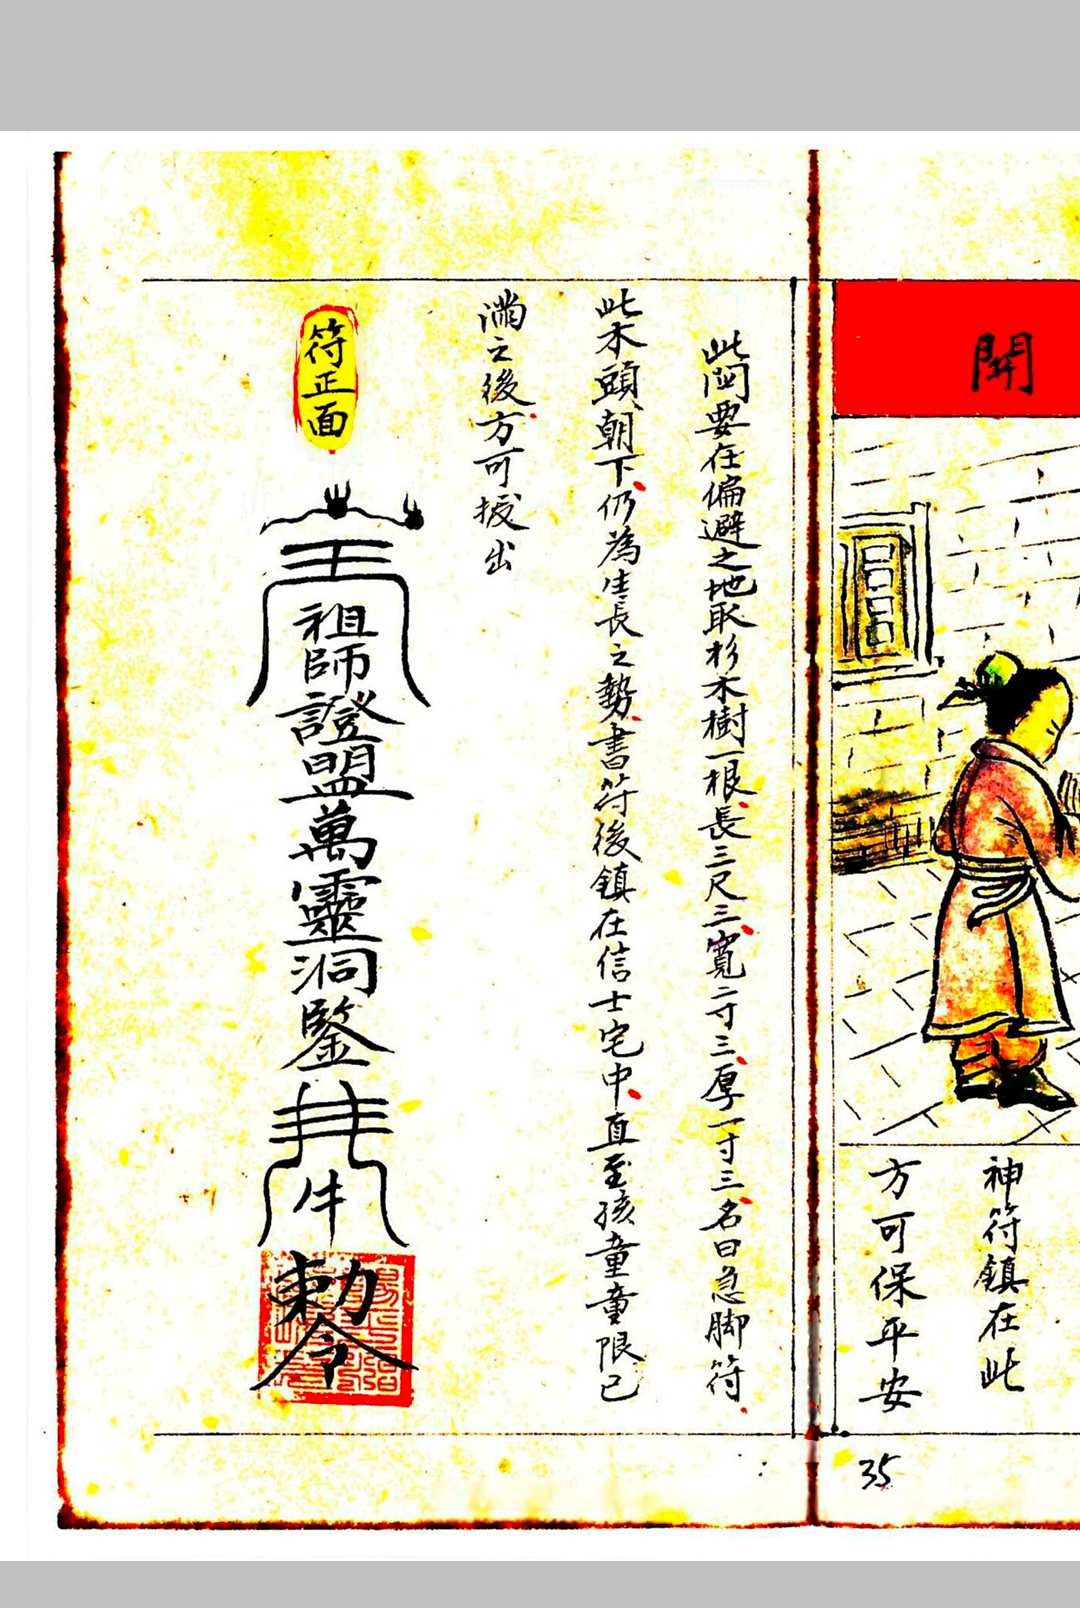 開
神符鎮在此
方可保平安
35
此関要在偏避之地取杉木樹一根、長三尺三、寬二寸三、厚一寸三、名曰急脚符、
此木頭、朝下、仍為生長之勢、書符後鎮在信士宅中、直至孩童童限已
滿之後、方可拔出
符正面
祖師證盟萬靈洞鑒
勅令